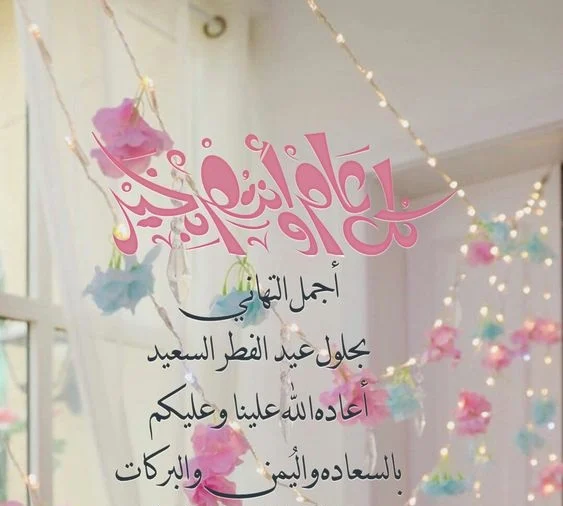 كل عام وأنتم بخير
أجمل التهاني
بحلول عيد الفطر السعيد
أعاده الله علينا وعليكم
بالسعاده واليُمن والبركات